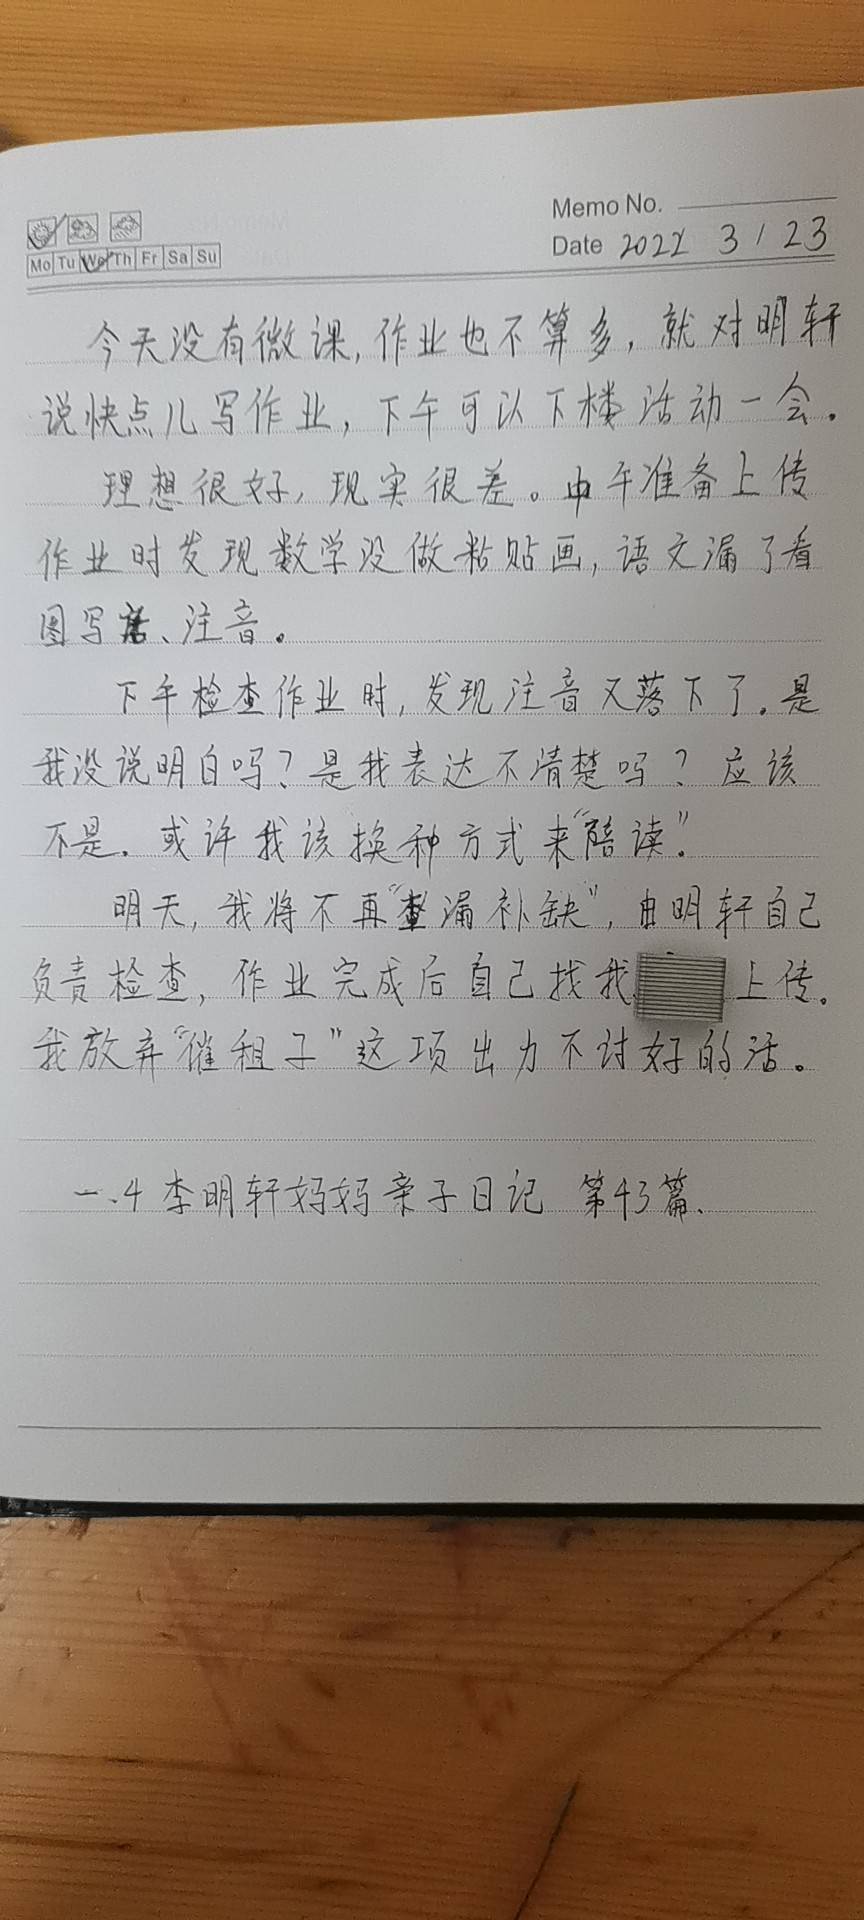 Memo No.
Mo Tu We Th Fr Sa Su
Date 2022 3 / 23
今天没有微课,作业也不算多,就对明轩
说快点儿写作业,下午可以下楼活动一会。
理想很好,现实很差。中午准备上传
作业时发现数学没做粘贴画,语文漏了看
图写话、注音。
下午检查作业时,发现注音又落下了。是
我没说明白吗?是我表达不清楚吗?应该
不是。或许我该换种方式来“陪读”。
明天,我将不再“查漏补缺”,由明轩自己
负责检查,作业完成后自己找我 上传。
我放弃“催租子”这项出力不讨好的活。
一.4 李明轩妈妈亲子日记 第43篇.